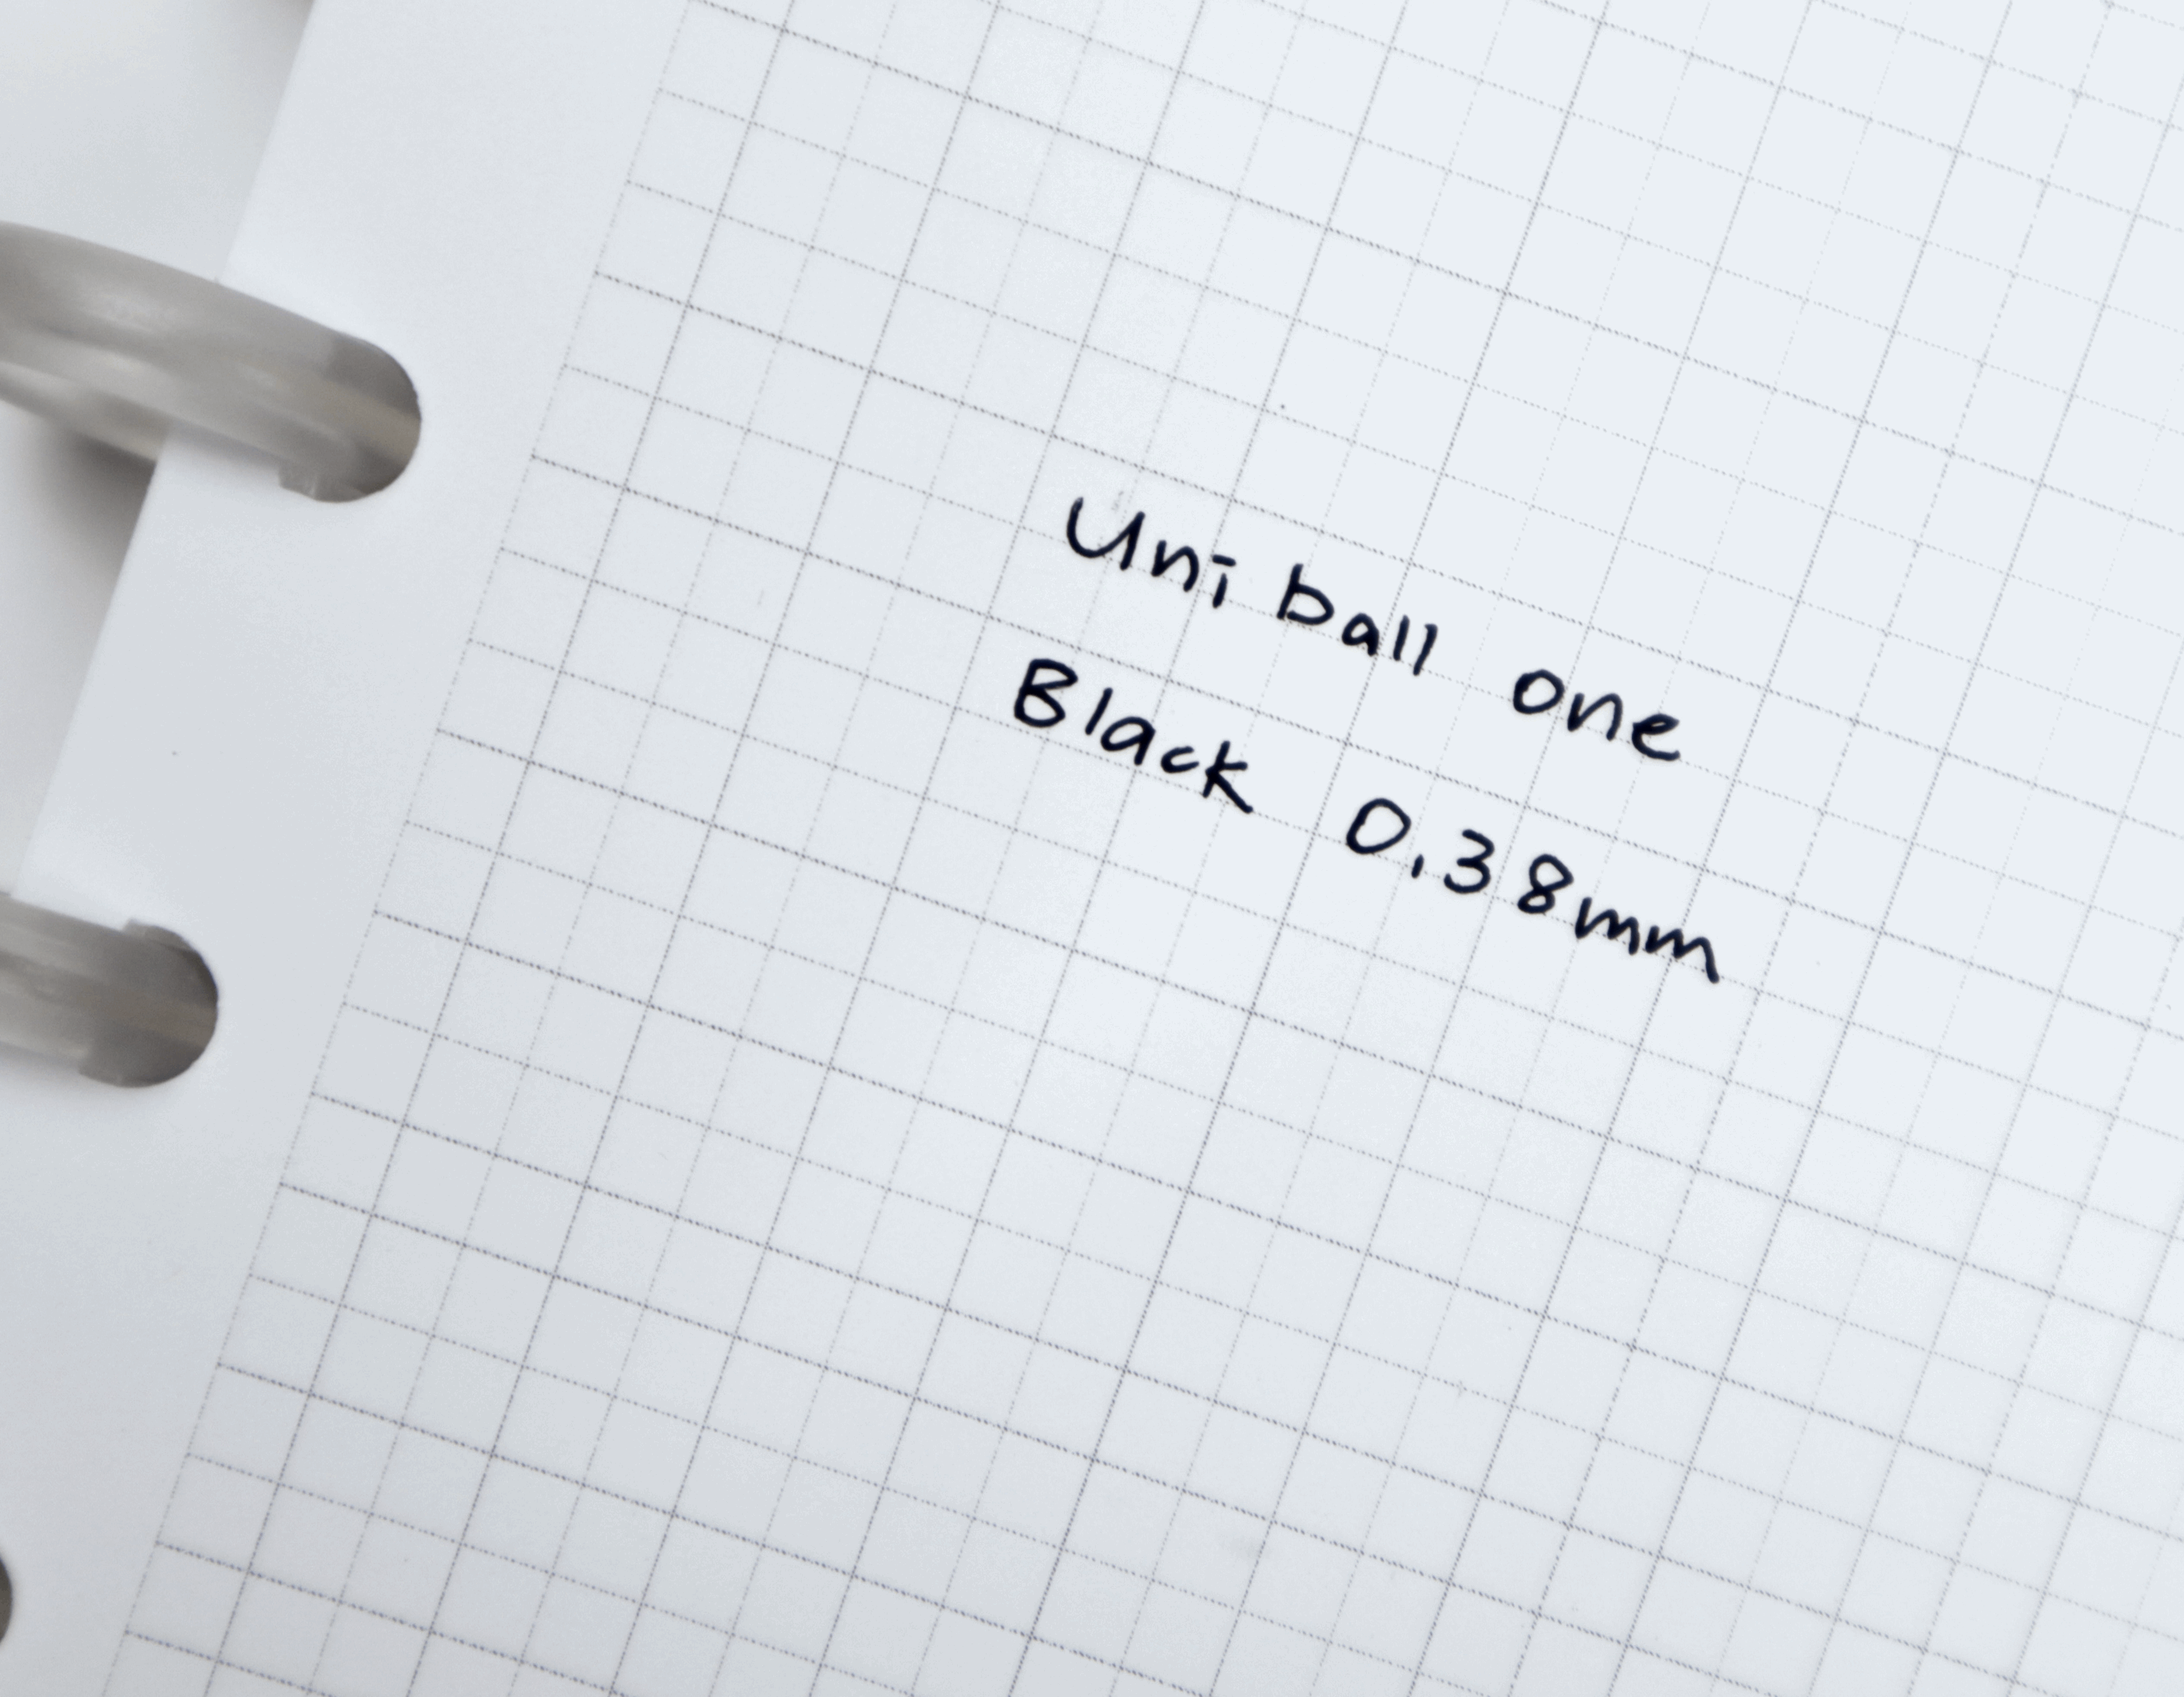 Uni ball one
Black 0.38mm